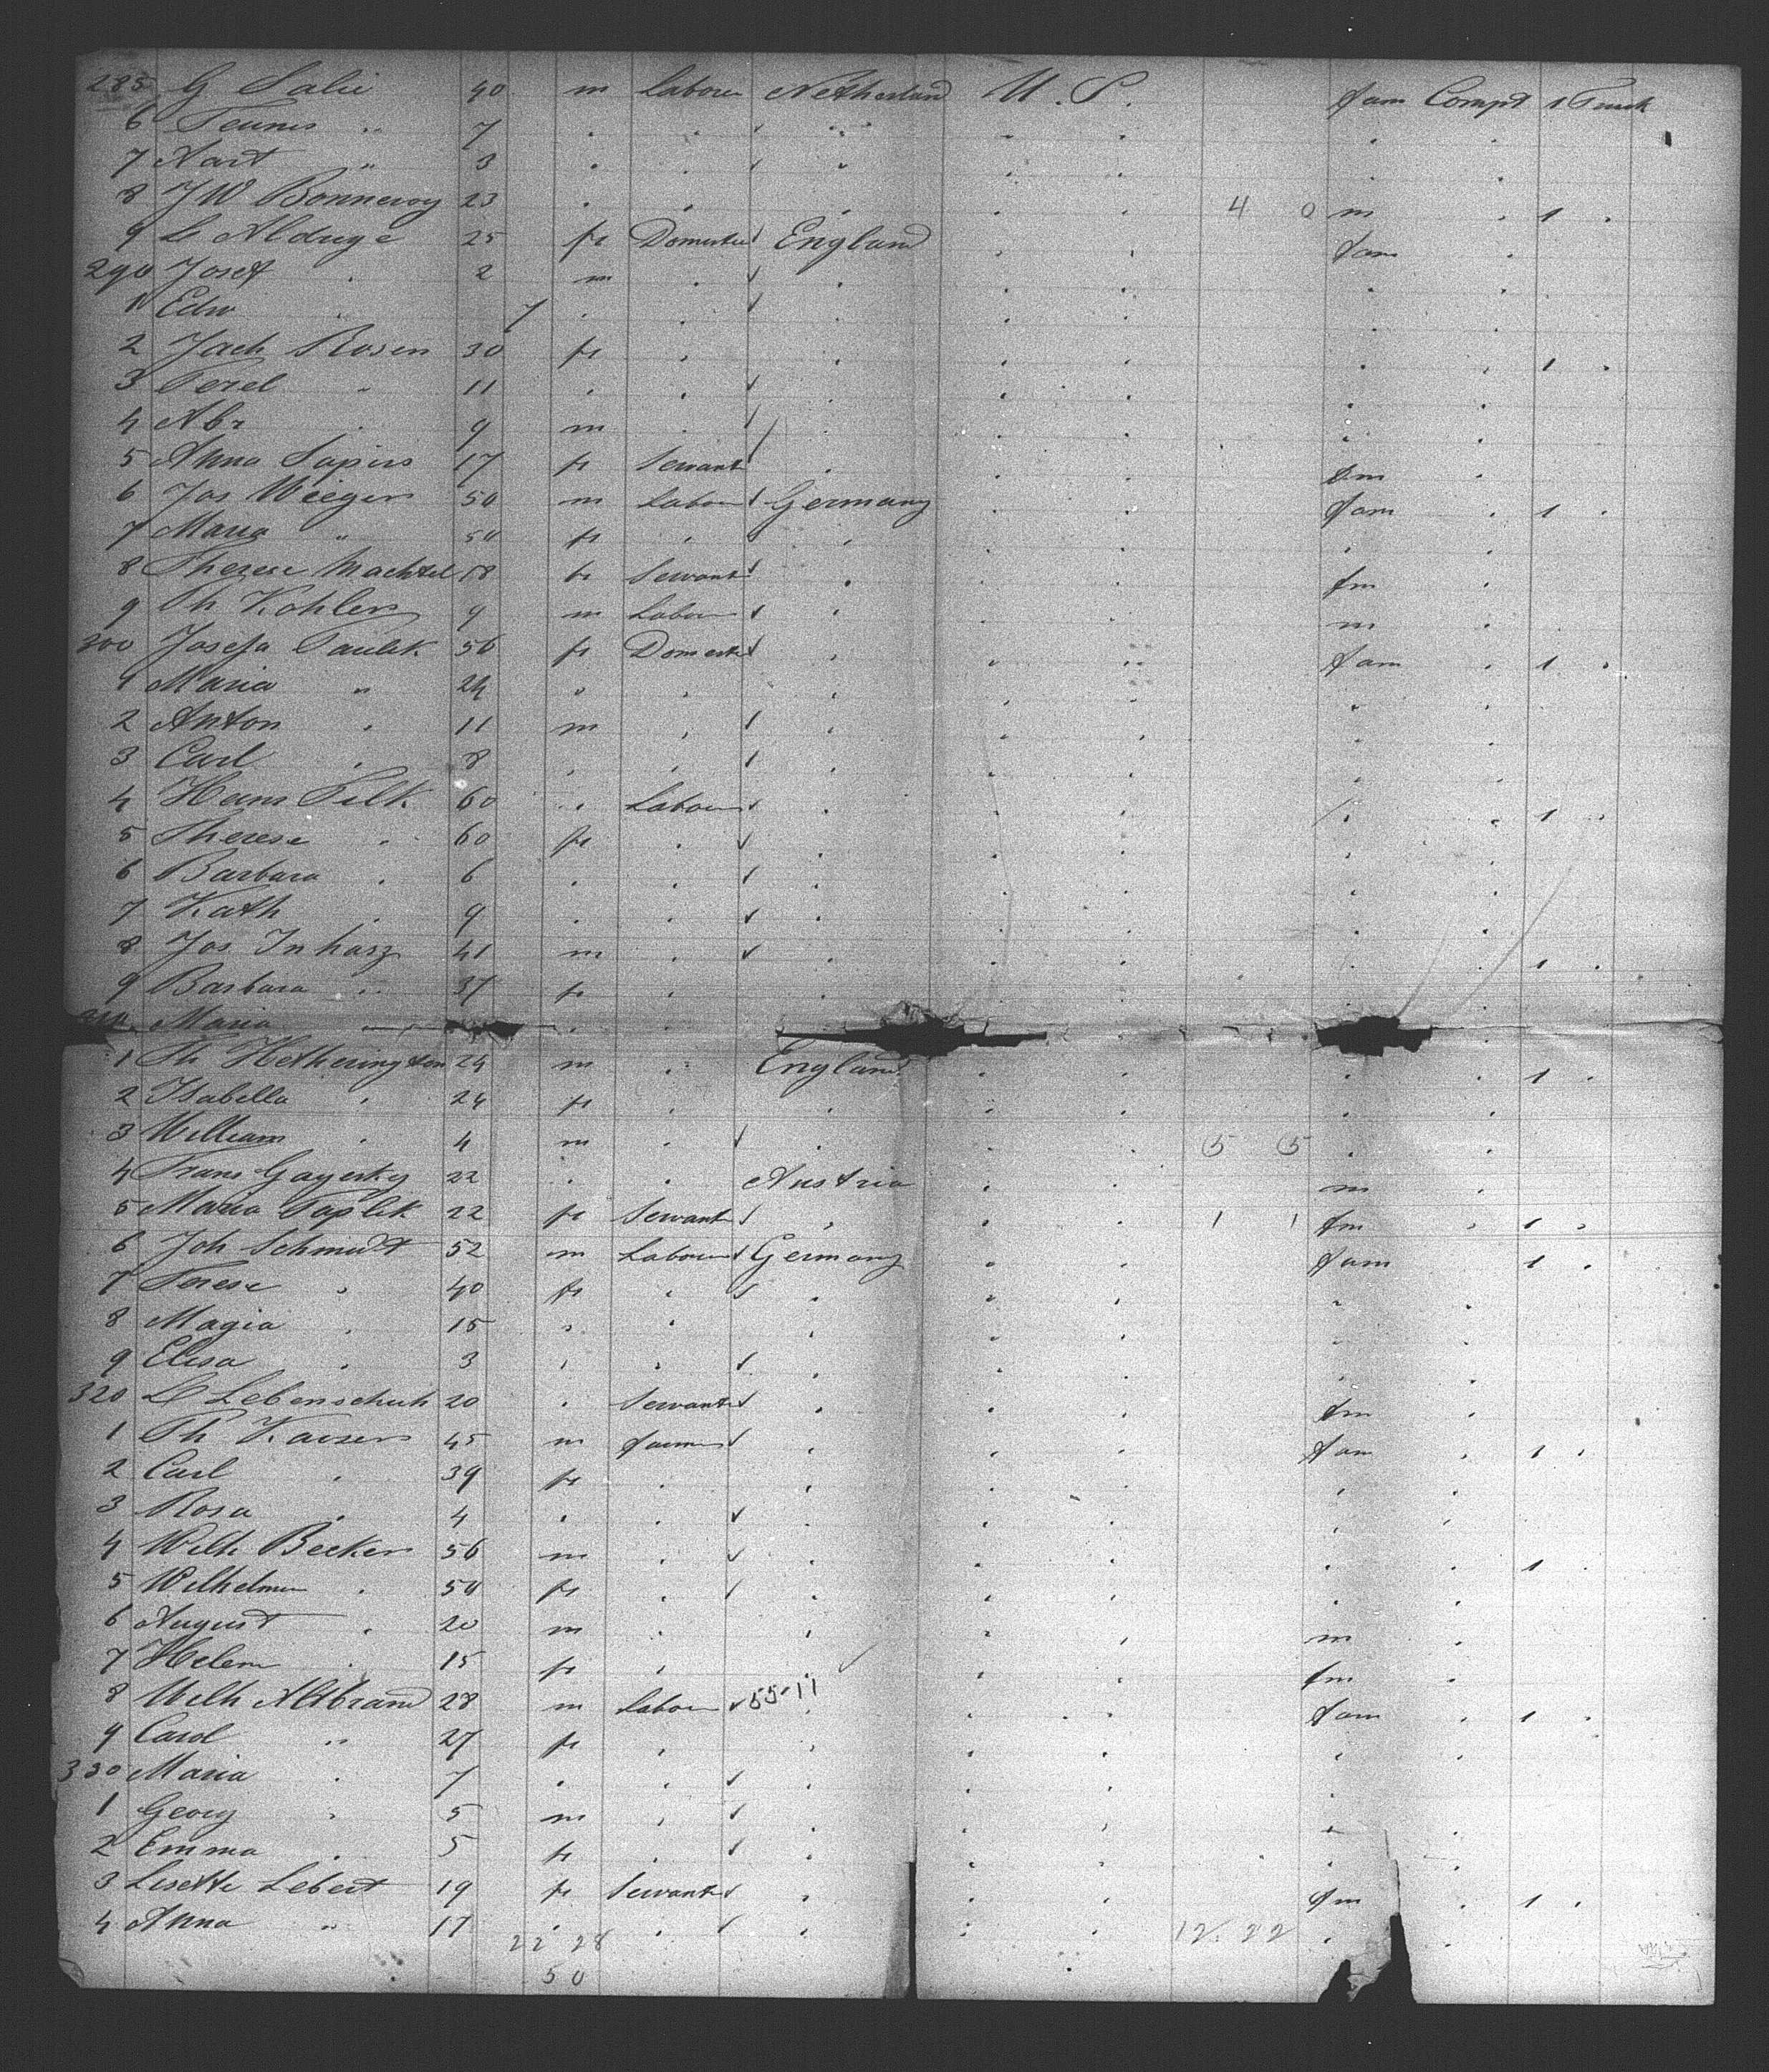 285 G Salie 40 m Labore Netherland U. S. fam Compt 1 Trunk
6 Teunis " 7 . . " " . .
7 Aart " 3 . . " . .
8 J W Bonnevoy 23 . . . . . 4 0 m . 1 .
9 L Aldrige 25 fe Domestic England . . fam .
290 Josef . 2 m . . . .
1 Edw . 7 . . . . .
2 Jach Rosen 30 fe . . . . . . 1 .
3 Perel " 11 . . . .
4 Abr . 9 m . . . .
5 Anna Sapirs 17 fe Servant . . . fm .
6 Jos Wiegers 50 m Labour Germany . . fam . 1 .
7 Maria " 50 fe . . . .
8 Therese Wachtel 18 fe Servant . . . fm .
9 Th Kohlers 9 m Labour . . . m .
300 Josefa Paulik 56 fe Domestic . . . fam . 1 .
1 Maria " 24 " . . . .
2 Anton . 11 m . . . .
3 Carl . 8 . . . . .
4 Hans Pilk 60 . Labour . . . . . 1 .
5 Therese . 60 fe . . . .
6 Barbara . 6 . . . . .
7 Kath . 9 . . . . .
8 Jos. Inhasz 41 m . . . . . . 1 .
9 Barbara " 37 fe . . . .
310 Maria . .
1 Th Hetherington 24 m . England . . . . 1 .
2 Isabella . 24 fe . . . .
3 William . 4 m . . . . 5 5 .
4 Frans Gayesky 22 . . Austria . . m .
5 Maria Paplik 22 fe Servant . . . 1 1 fm . 1 .
6 Joh Schmidt 52 m Labour Germany . . fam . 1 .
7 Terese . 40 fe . . . .
8 Magia . 15 . . . . .
9 Elisa . 3 . . . . .
320 L Lebenschuh 20 . Servant . . . fm .
1 Th Kaisers 45 m farmer . . . fam . 1 .
2 Carl . 39 fe . . . .
3 Rosa . 4 . . . . .
4 Wilh Becker 56 m . . . . . . 1 .
5 Wilhelmin . 50 fe . . . .
6 August . 20 m . . . . m .
7 Helen . 15 fe . . . fm .
8 Wilh Altbrand 28 m Labour 55-11 . . fam . 1 .
9 Carol " 27 fe . . . .
330 Maria . 7 . . . . .
1 Georg . 5 m . . . .
2 Emma . 5 fe . . . .
3 Lisette Lebert 19 fe Servant . . . fm . 1 .
4 Anna " 17 . . . . . 12 22 .
22 28
50